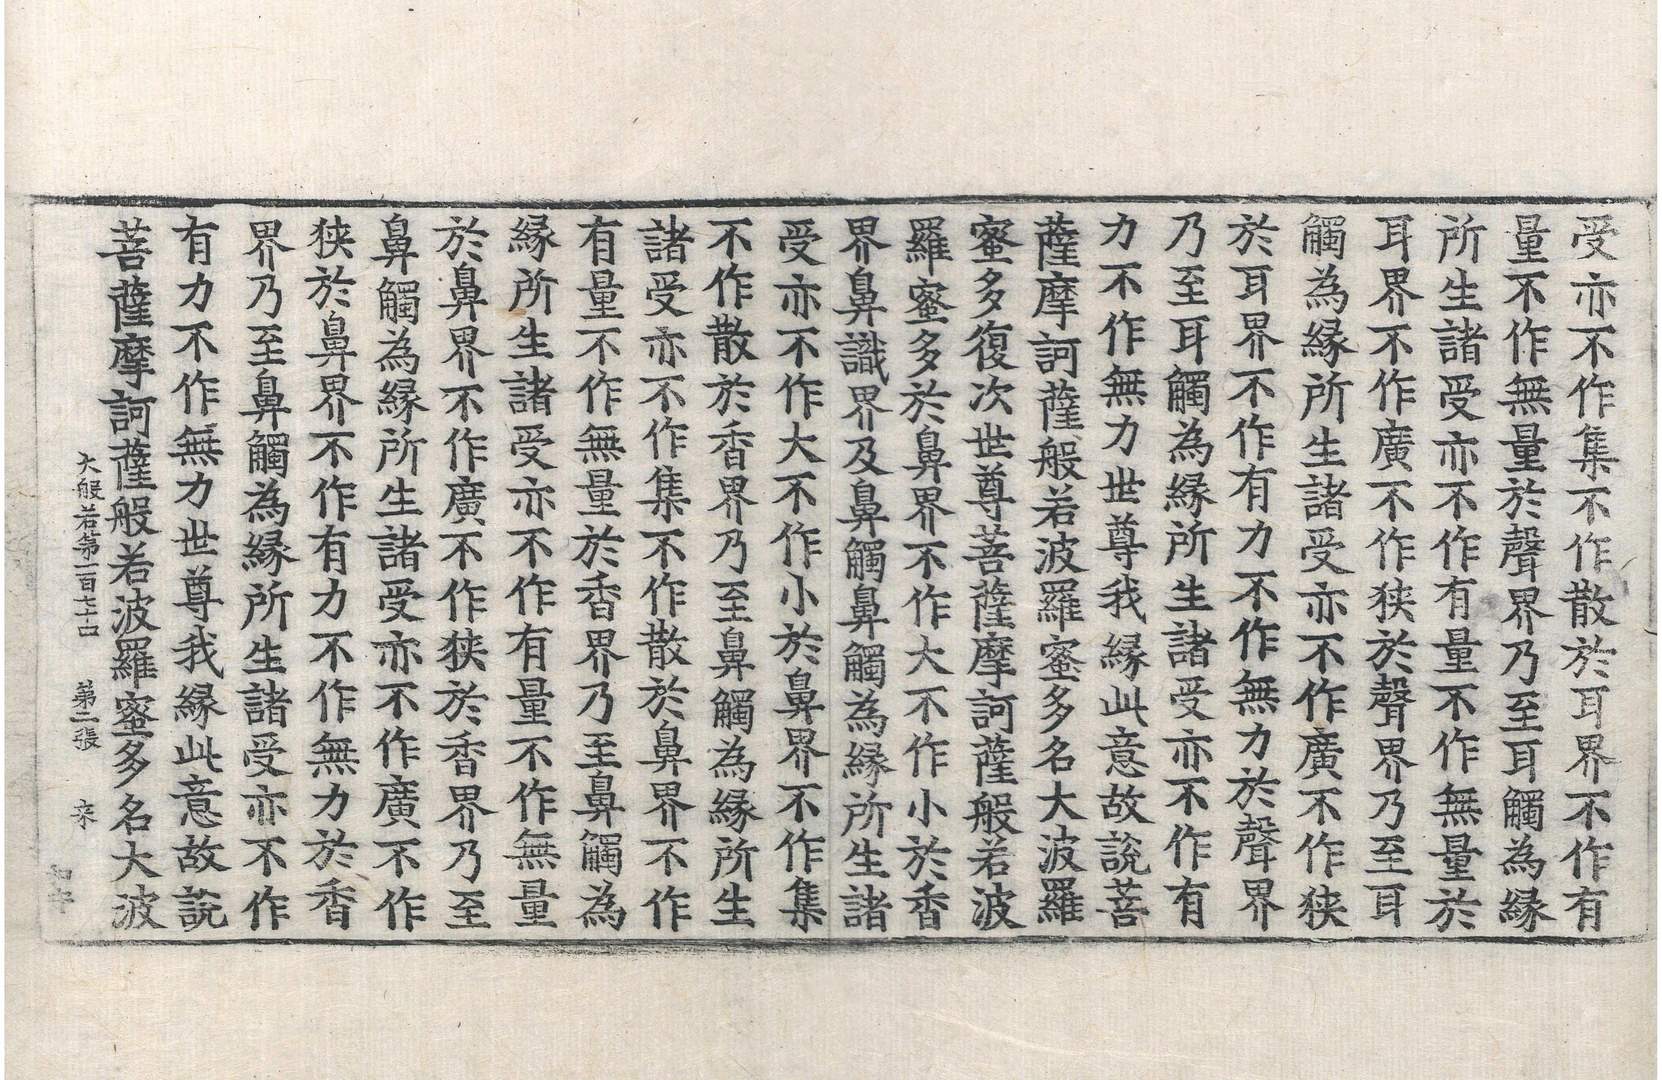 受亦不作集不作散於耳界不作有
量不作無量於聲界乃至耳觸為縁
所生諸受亦不作有量不作無量於
耳界不作廣不作狹於聲界乃至耳
觸為縁所生諸受亦不作廣不作狹
於耳界不作有力不作無力於聲界
乃至耳觸為縁所生諸受亦不作有
力不作無力世尊我縁此意故說菩
薩摩訶薩般若波羅蜜多名大波羅
蜜多復次世尊菩薩摩訶薩般若波
羅蜜多於鼻界不作大不作小於香
界鼻識界及鼻觸鼻觸為縁所生諸
受亦不作大不作小於鼻界不作集
不作散於香界乃至鼻觸為縁所生
諸受亦不作集不作散於鼻界不作
有量不作無量於香界乃至鼻觸為
縁所生諸受亦不作有量不作無量
於鼻界不作廣不作狹於香界乃至
鼻觸為縁所生諸受亦不作廣不作
狹於鼻界不作有力不作無力於香
界乃至鼻觸為縁所生諸受亦不作
有力不作無力世尊我縁此意故說
菩薩摩訶薩般若波羅蜜多名大波
大般若第一百七十四 第二張 来